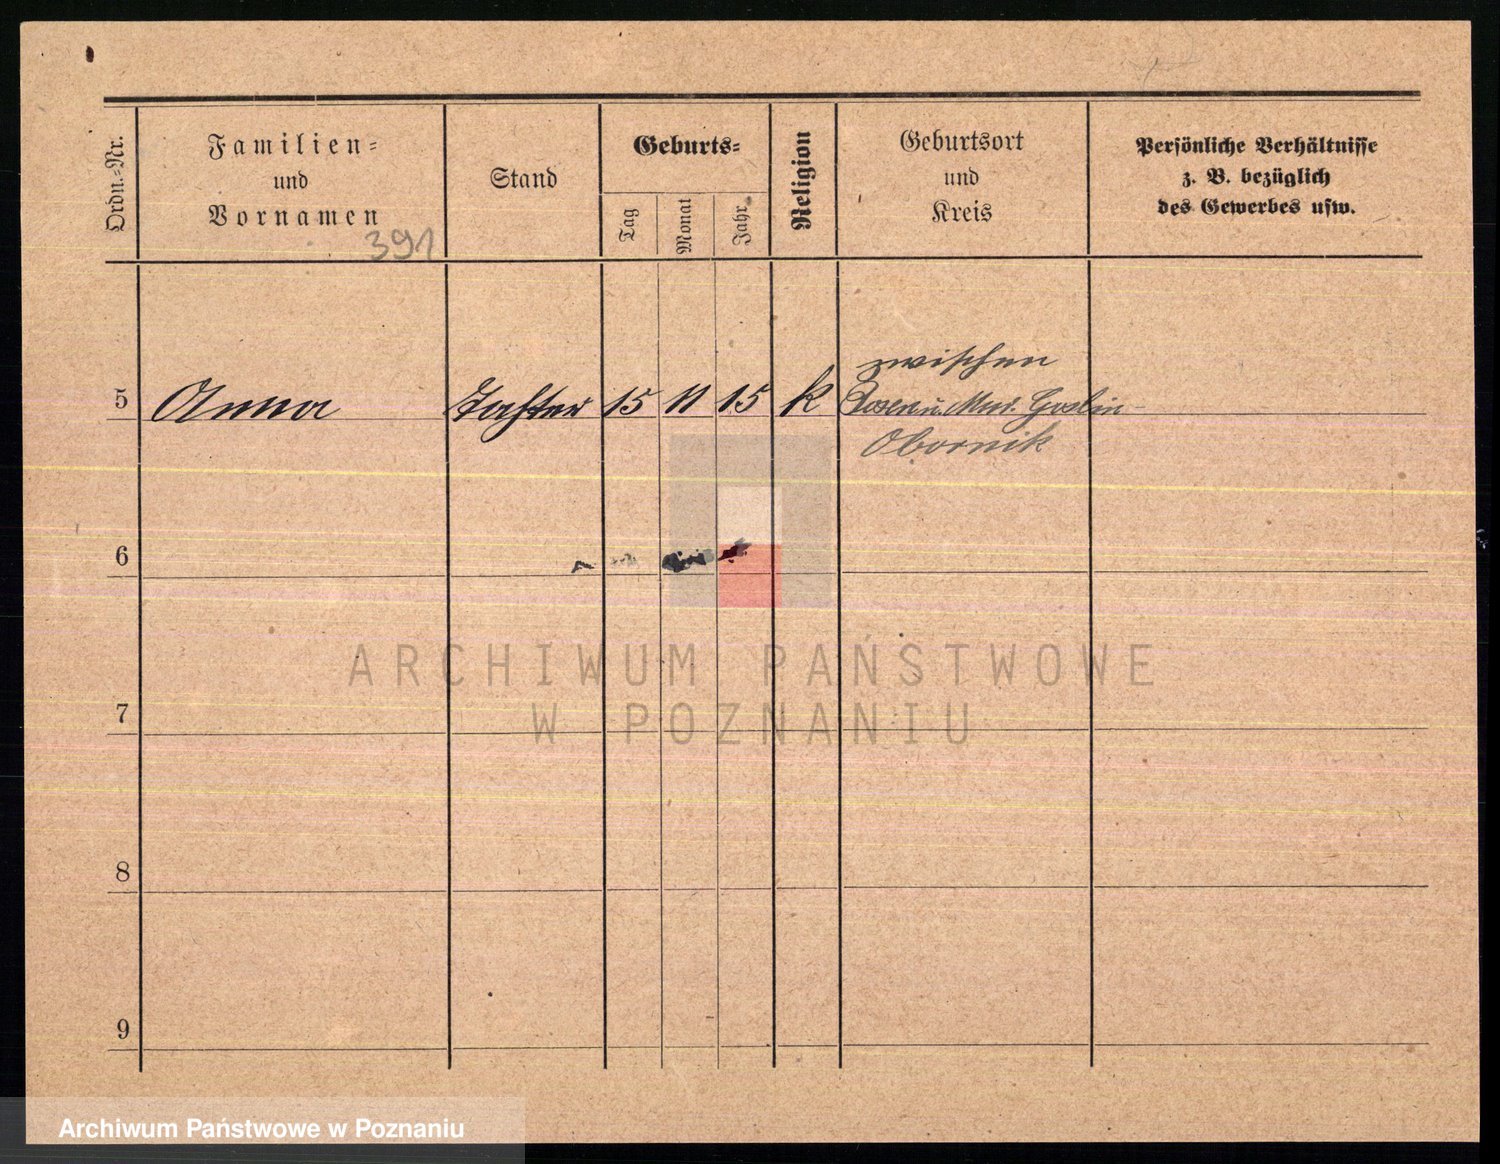 Ordn.-Nr.
Familien-
und
Vornamen
391
Stand
Geburts-
Tag
Monat
Jahr
Religion
Geburtsort
und
Kreis
Persönliche Verhältnisse
z. B. bezüglich
des Gewerbes usw.
zwischen
5 Anna Tochter 15 11 15 k Posen u. Mur. Goslin-
Obornik
6
7
8
9
ARCHIWUM PAŃSTWOWE
W POZNANIU
Archiwum Państwowe w Poznaniu